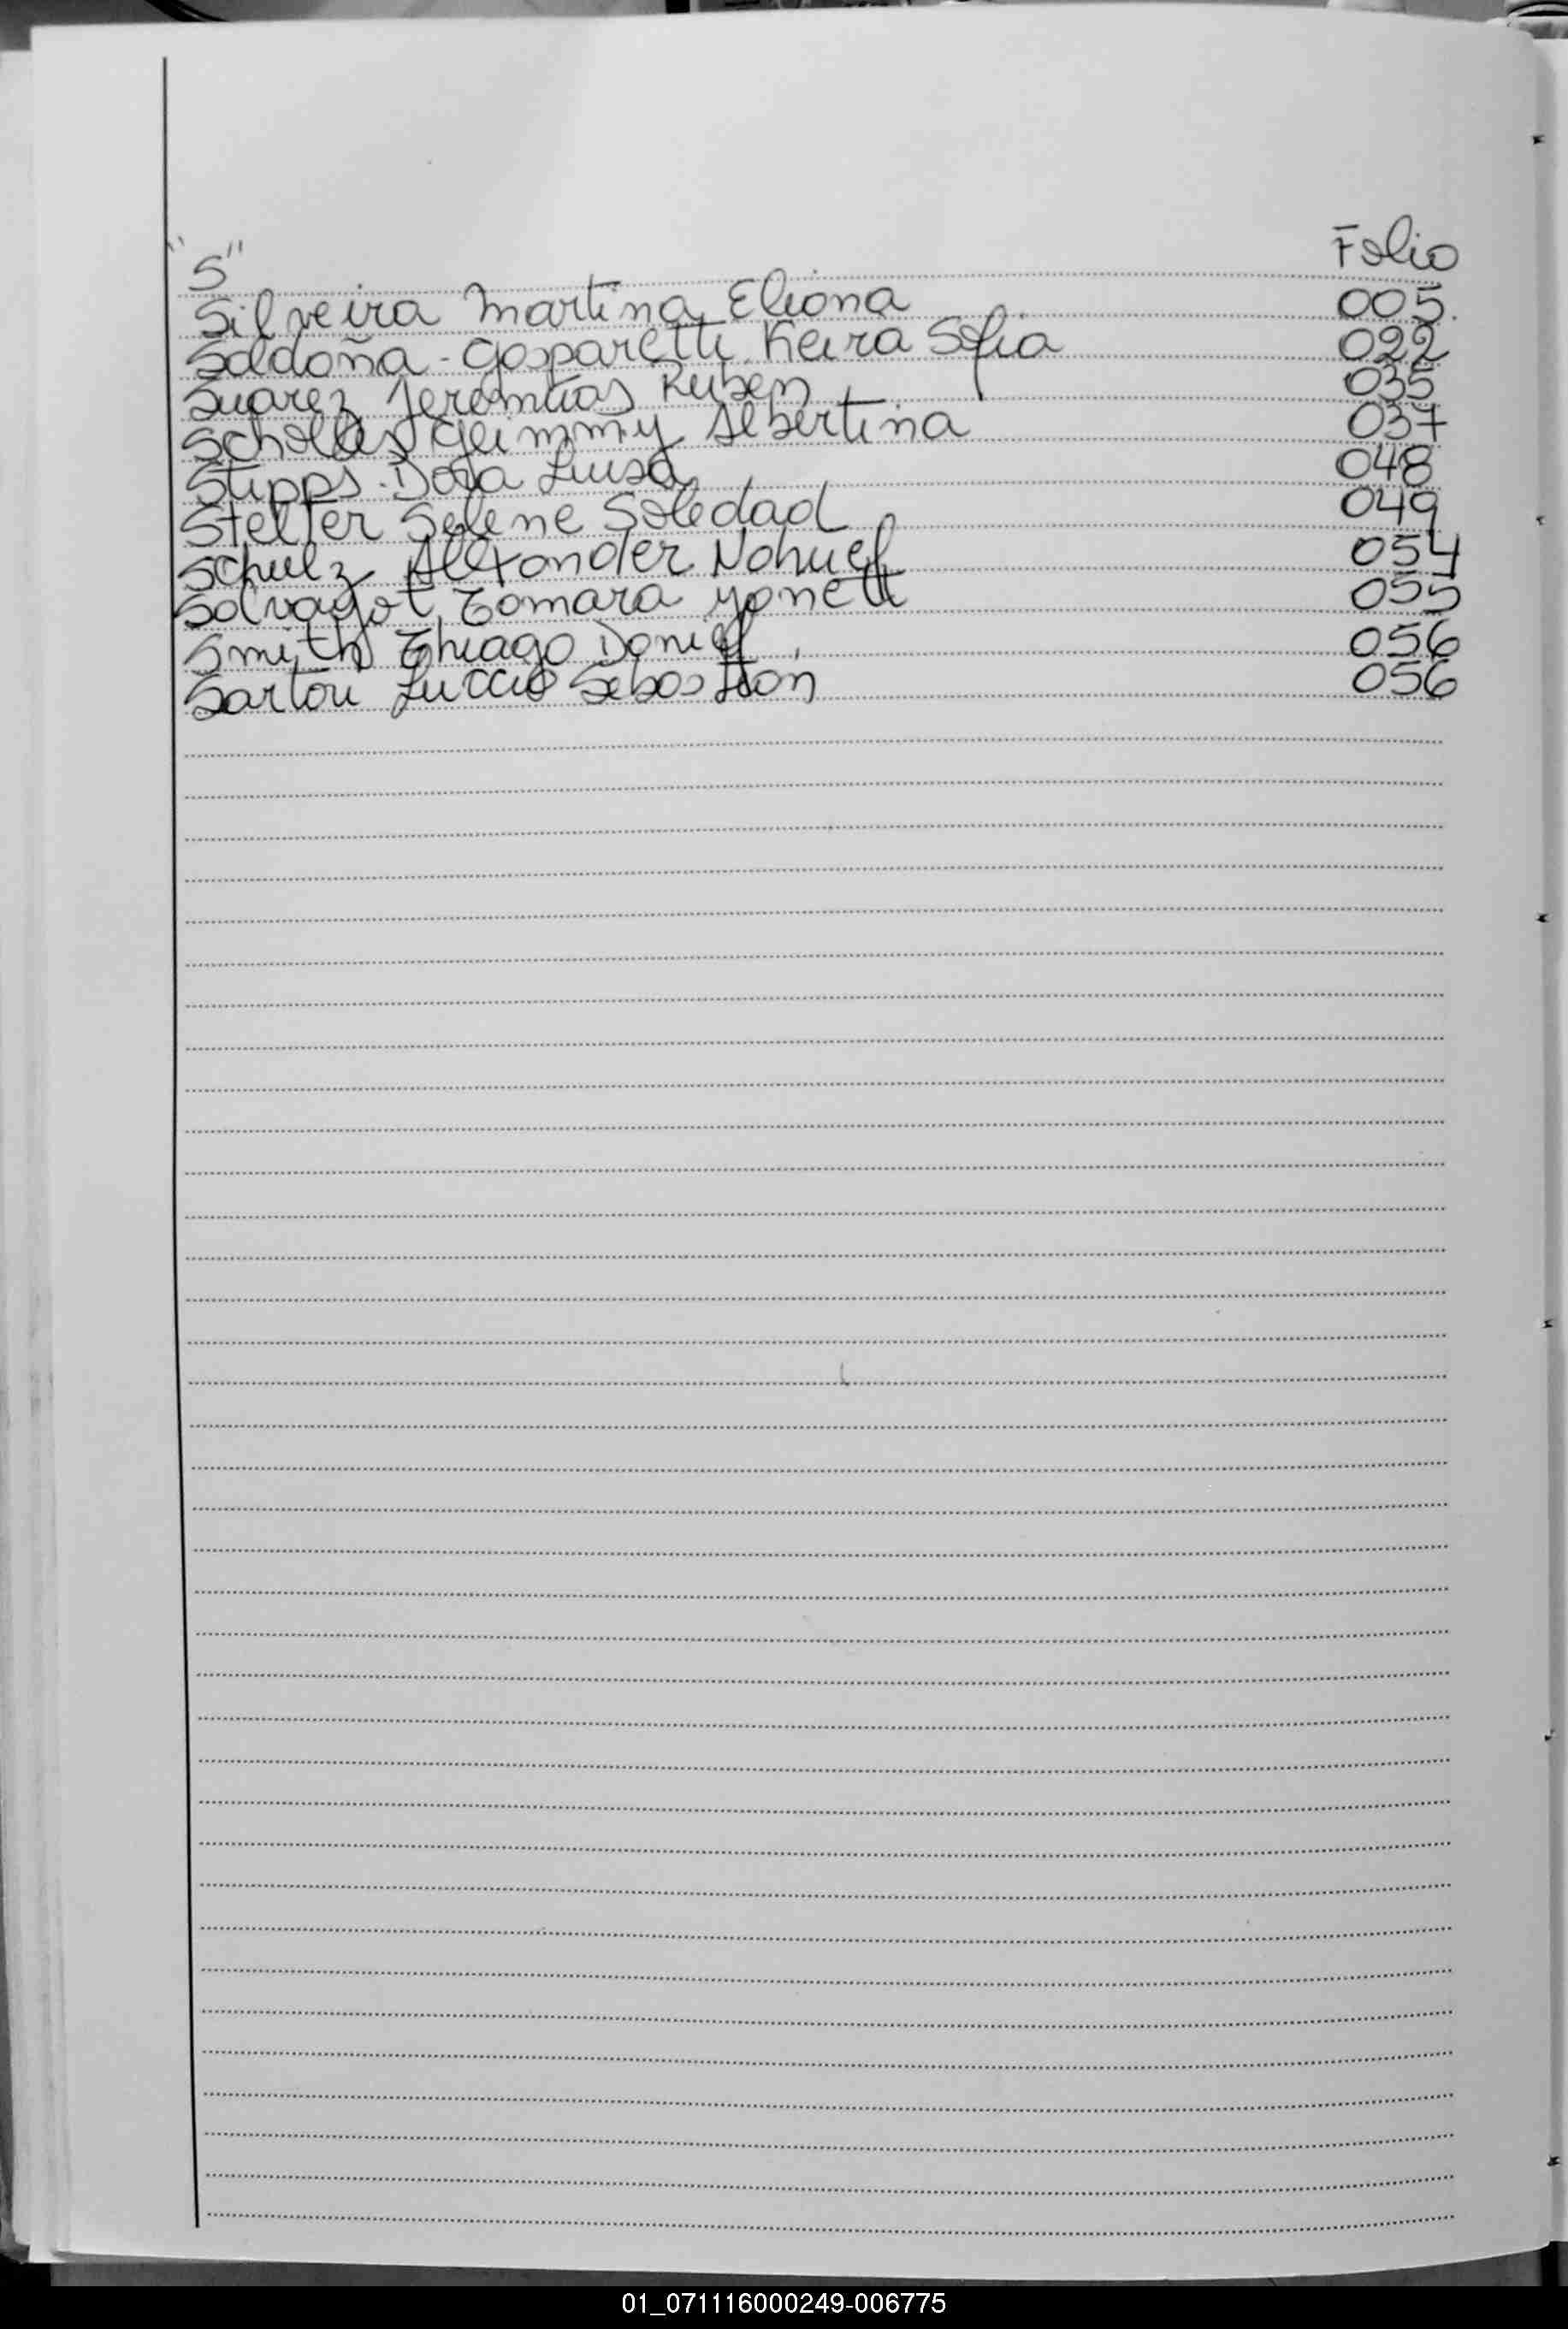 "S" Folio
Silveira Martina Eliana 005.
Saldaña - Gasparetti Keira Sofia 022
Suarez Jeremias Ruben 035
Albertina 037
Stipps Luisa 048
Selene Soledad 049
Schulz Alexander Nahuel 054
Salvagot Tamara Yanett 055
Smith Thiago Daniel 056
Sartori Luccio Sebastian 056
01_071116000249-006775